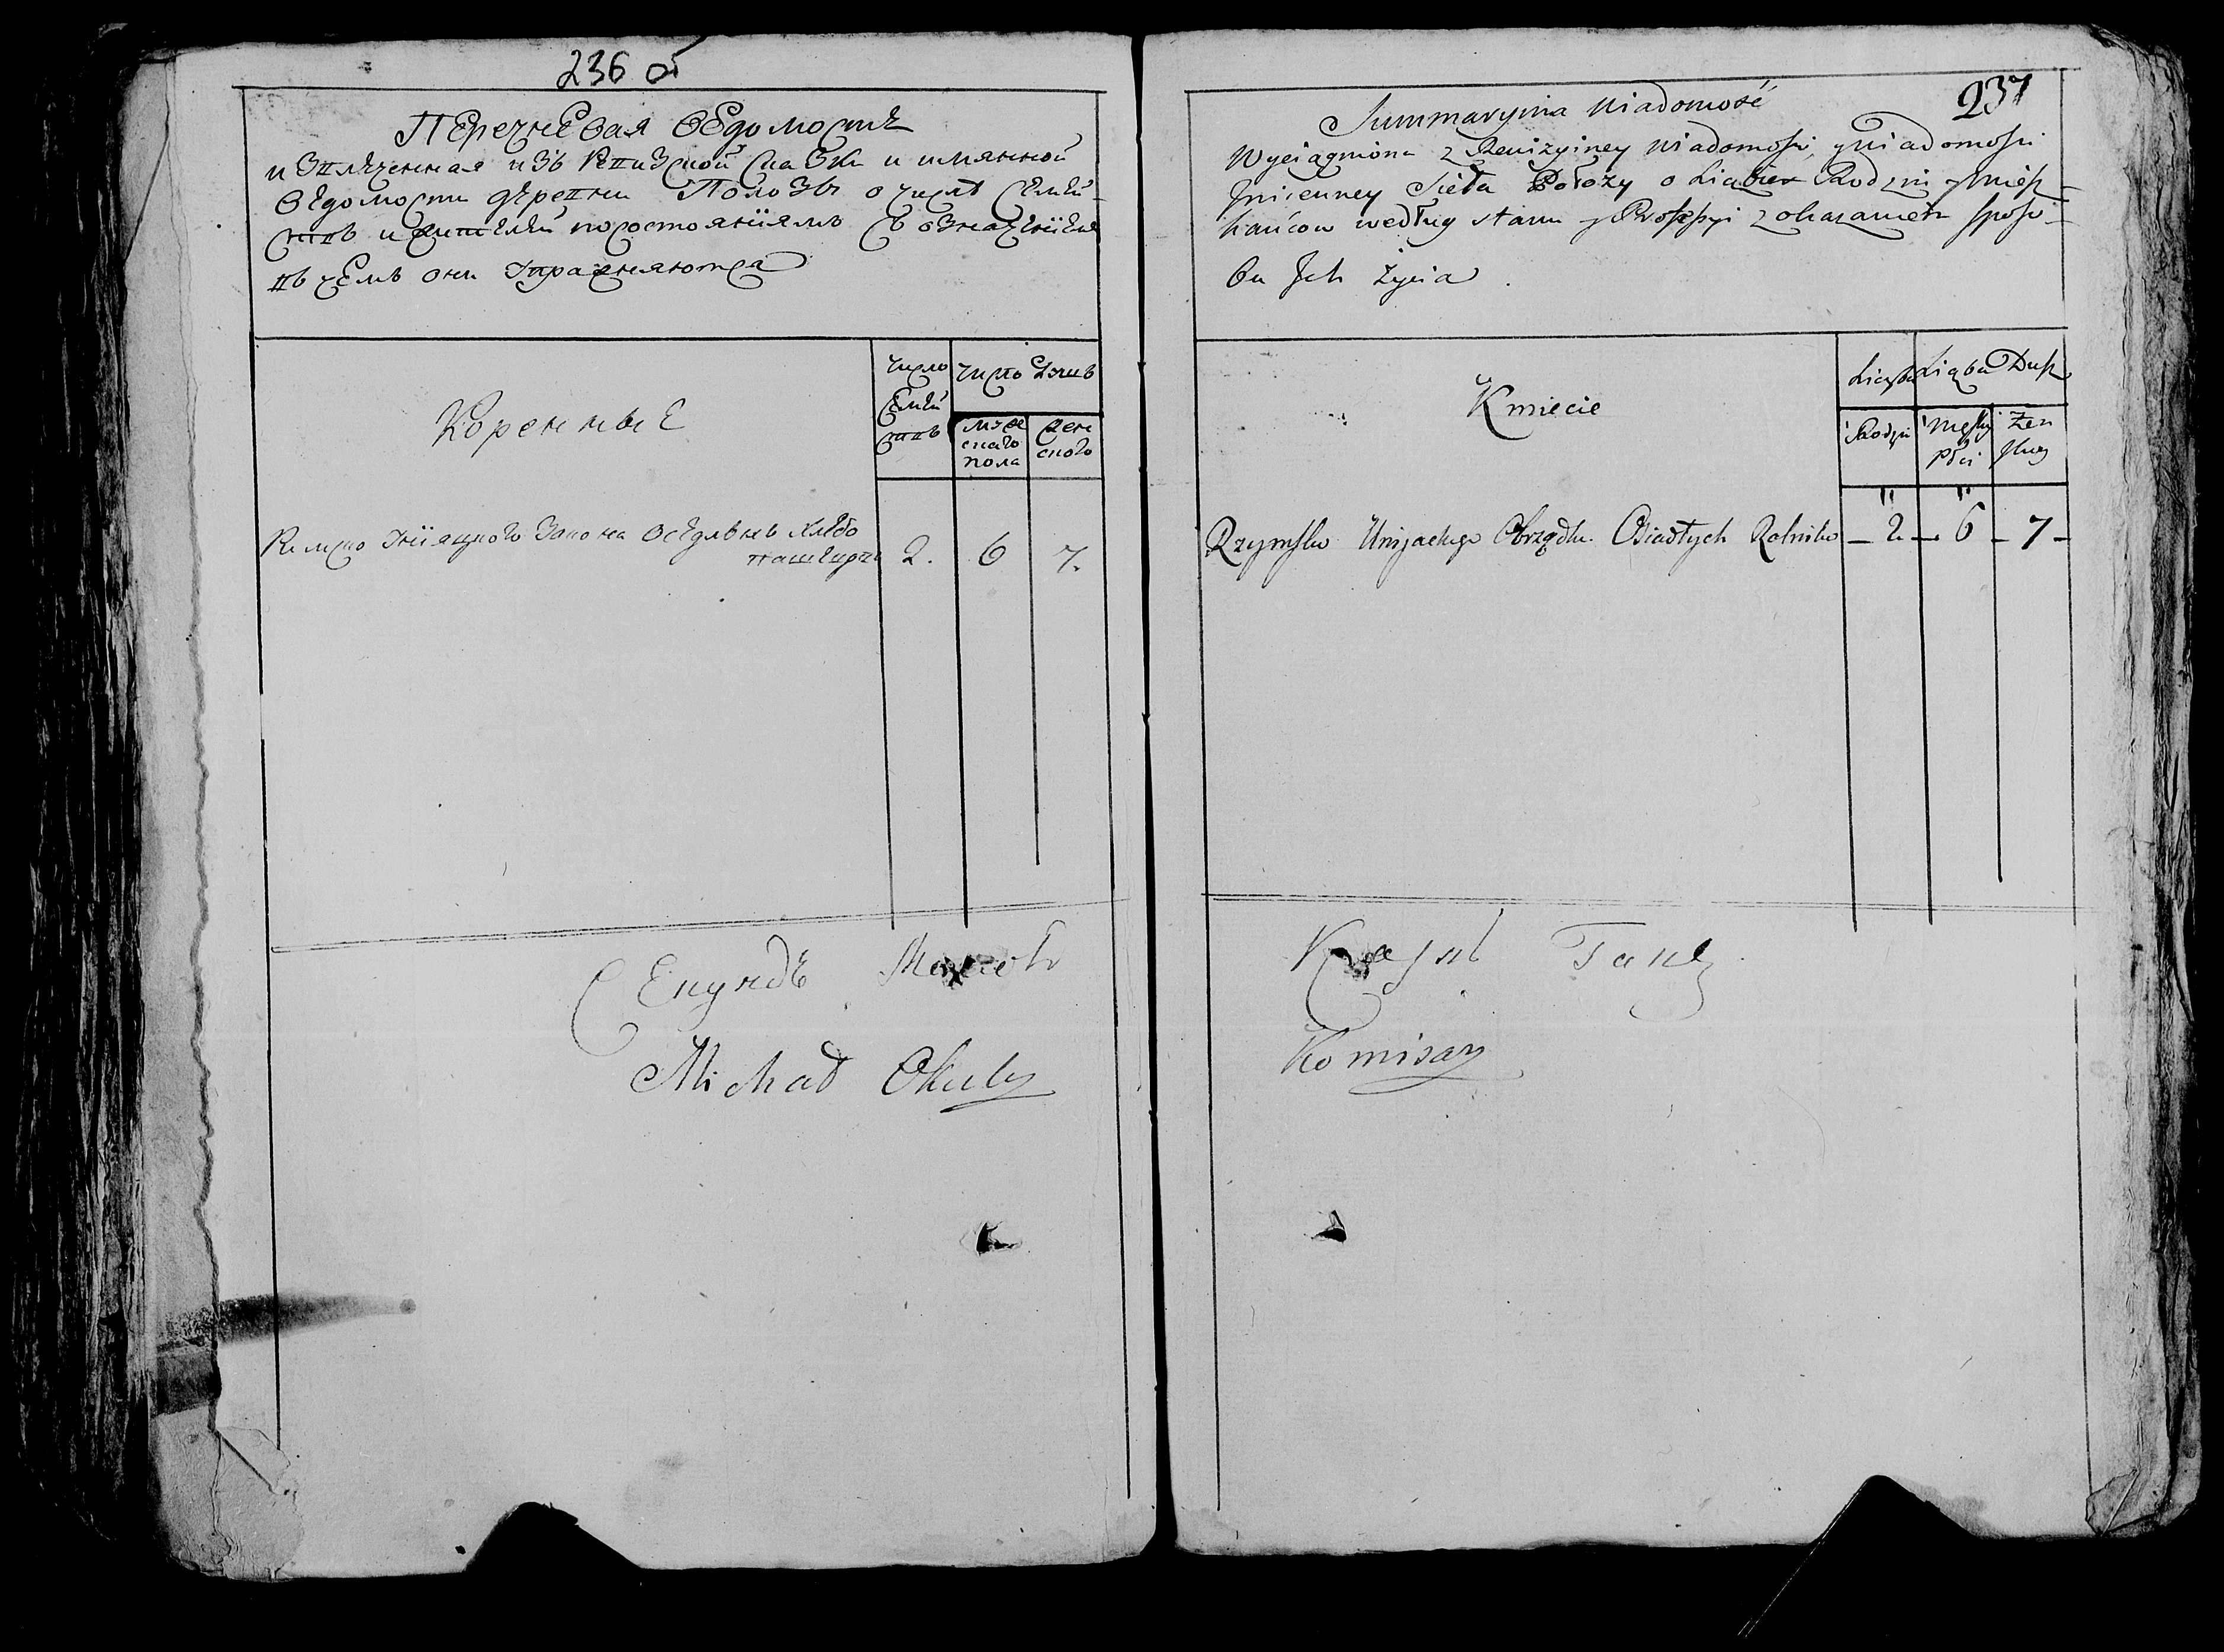 236 об
Перечневая ведомость
извлеченная изъ Ревизской сказки и имянной
ведомости деревни Положъ о числѣ семей-
ствъ и жителей по состоянiямъ съ означенiем
въ чемъ они упражняются
Коренные
число семей ствъ
число душъ
муже скаго пола
жен ского
Римско Унiяцкого Закона оседлыхъ хлебо
пашцирц 2. 6 7.
Секундъ
Michał Okuly
237
Summaryina Wiadomość
Wyciągniona z Rewizyiney Wiadomości, y Wiadomości
Jmienney Sioła Położy o Liczbie Rodzin y Miesz-
kańcow według stanu y Professyi z okazaniem sposo-
bu Jch życia.
Kmiecie
Liczba Rodzin
Liczba Dusz
Męsky płci
Żen skiey
Rzymsko Unijackego Obrządku Osiadłych Rolnikow – 2 – 6 – 7 –
Komisarz